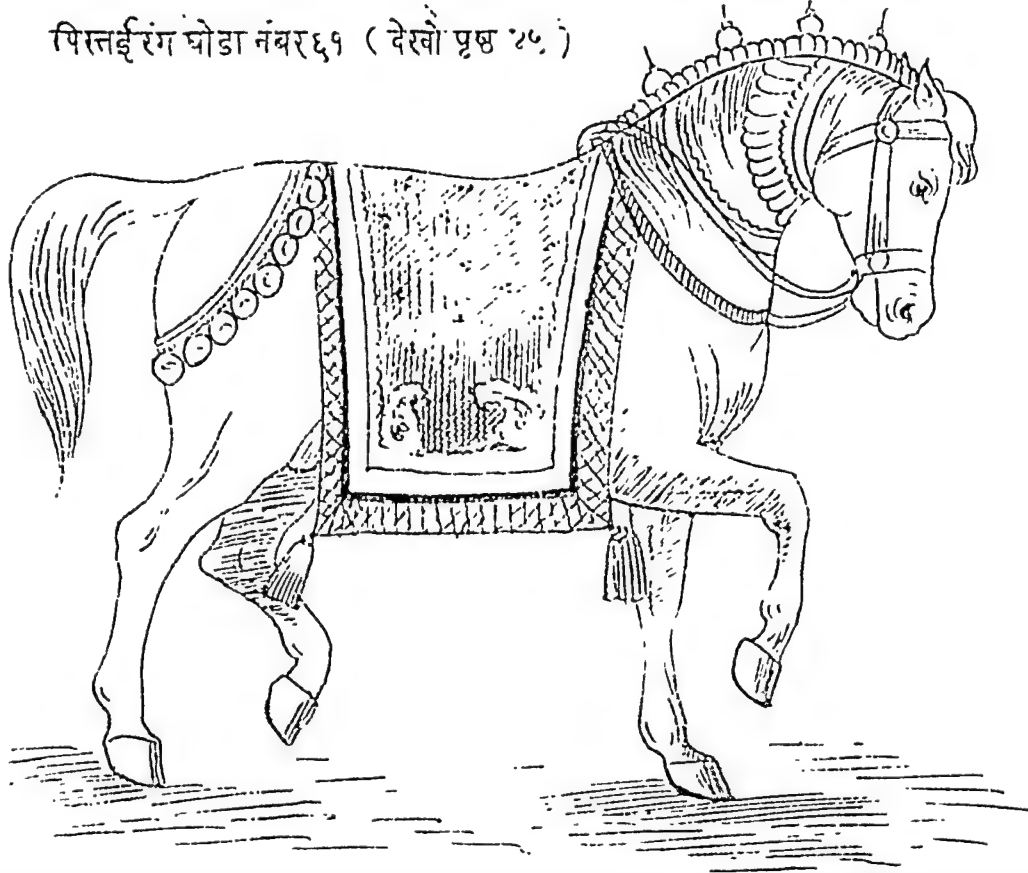 पिस्तईरंग घोडा नंबर ६१ ( देखो पृष्ठ ४५ )